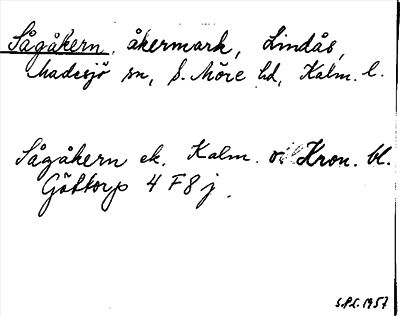 Sågåkern, åkermark, Lindås,
Madesjö sn, S. Möre hd, Kalm. l.
Sågåkern ek. Kalm. o Kron. bl.
Göttorp 4 F 8 j.
S.P.L. 1957